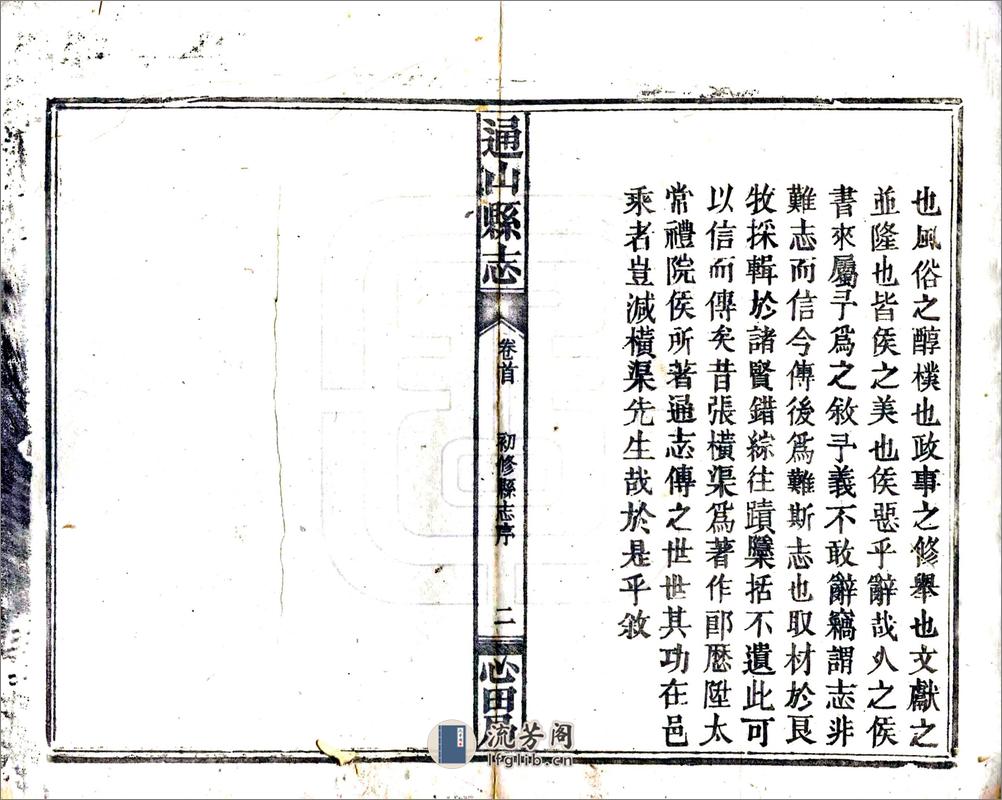 也風俗之醇樸也政事之修舉也文獻之
並隆也皆侯之美也侯惡乎辭哉久之侯
書來屬予爲之敘予義不敢辭竊謂志非
難志而信今傳後爲難斯志也取材於良
牧採輯於諸賢錯綜往蹟檃括不遺此可
以信而傳矣昔張橫渠爲著作郎歷陞太
常禮院侯所著通志傳之世世其功在邑
乘者豈減橫渠先生哉於是乎敘
通山縣志
卷首
初修縣志序
二
心田
流芳阁
lfglib.cn